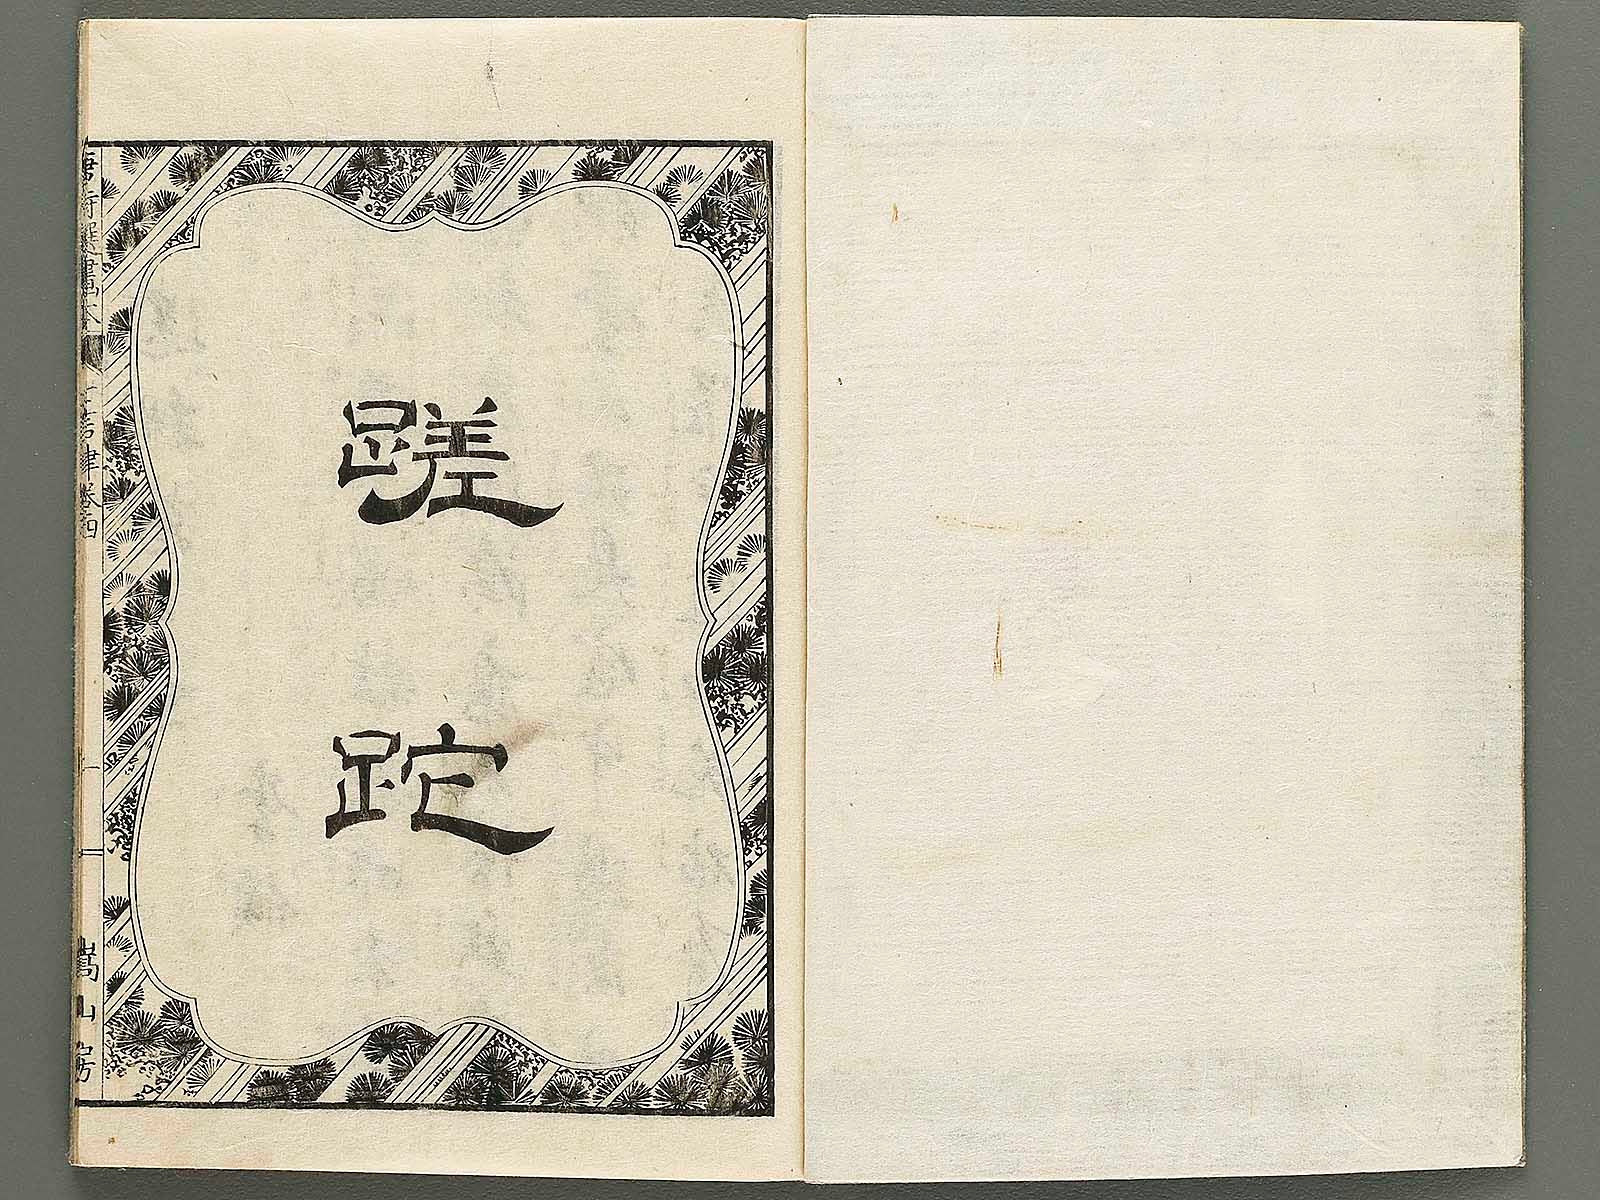 蹉跎
唐詩選畫本 七言律卷四
嵩山房